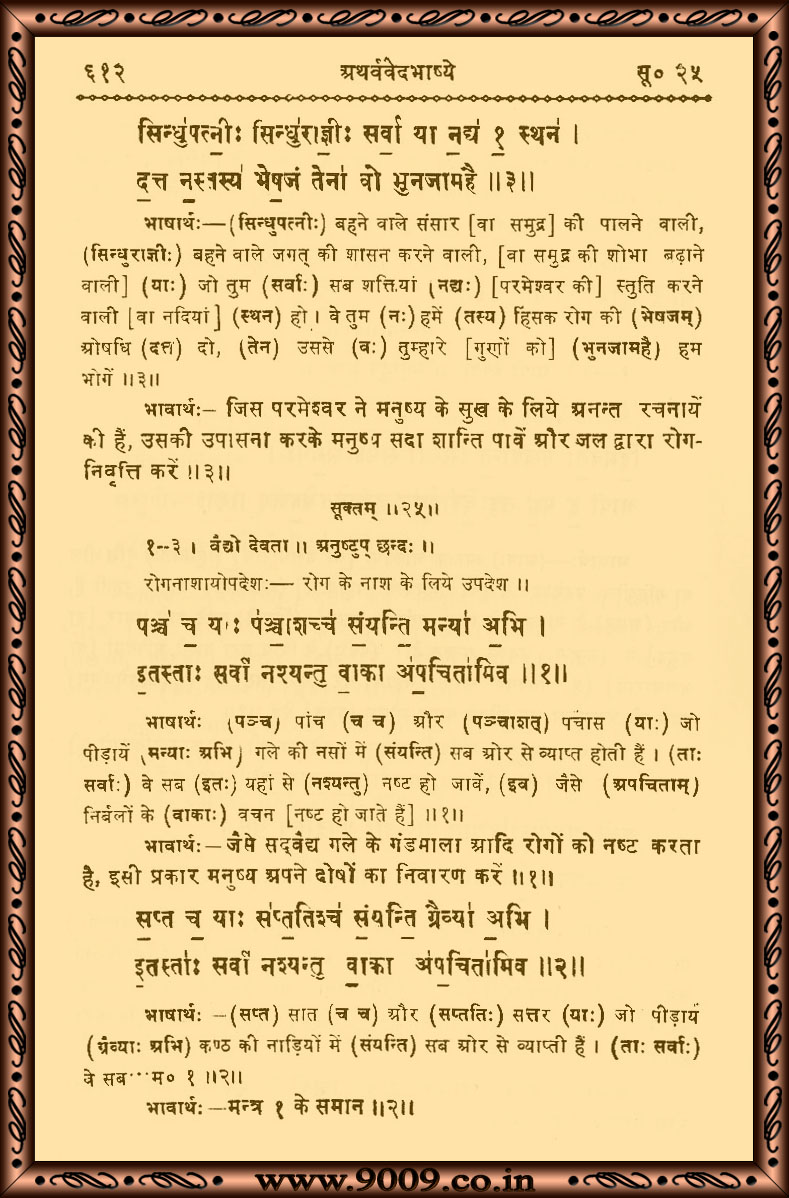 ६१२ अथर्ववेदभाष्ये सू० २५
सिन्धु॑पत्नी॒ः सिन्धु॑राज्ञी॒ः सर्वा॒ या न॒द्य॑ १॒ स्थन॑ ।
द॒त्त न॒स्तस्य॑ भेष॒जं तेना॑ वो भुनजामहै ॥३॥
भाषार्थः—(सिन्धुपत्नीः) बहने वाले संसार [वा समुद्र] की पालने वाली,
(सिन्धुराज्ञीः) बहने वाले जगत् की शासन करने वाली, [वा समुद्र की शोभा बढ़ाने
वाली] (याः) जो तुम (सर्वाः) सब शक्तियां (नद्यः) [परमेश्वर की] स्तुति करने
वाली [वा नदियां] (स्थन) हो । वे तुम (नः) हमें (तस्य) हिंसक रोग की (भेषजम्)
ओषधि (दत्त) दो, (तेन) उससे (वः) तुम्हारे [गुणों को] (भुनजामहै) हम
भोगें ॥३॥
भावार्थः— जिस परमेश्वर ने मनुष्य के सुख के लिये अनन्त रचनायें
की हैं, उसकी उपासना करके मनुष्य सदा शान्ति पावें और जल द्वारा रोग-
निवृत्ति करें ॥३॥
सूक्तम् ॥२५॥
१--३ । वैद्यो देवता ॥ अनुष्टुप् छन्दः ॥
रोगनाशायोपदेशः— रोग के नाश के लिये उपदेश ॥
पञ्च॑ च॒ याः प॑ञ्चा॒शच्च॑ सं॒यन्ति॒ मन्या॑ अ॒भि ।
इ॒तस्ताः सर्वा॑ नश्यन्तु॒ वा॒का अ॑प॒चिता॑मिव ॥१॥
भाषार्थः (पञ्च) पांच (च च) और (पञ्चाशत्) पचास (याः) जो
पीड़ायें (मन्याः अभि) गले की नसों में (संयन्ति) सब ओर से व्याप्त होती हैं । (ताः
सर्वाः) वे सब (इतः) यहां से (नश्यन्तु) नष्ट हो जावें, (इव) जैसे (अपचिताम्)
निर्बलों के (वाकाः) वचन [नष्ट हो जाते हैं] ॥१॥
भावार्थः—जैसे सद्वैद्य गले के गंडमाला आदि रोगों को नष्ट करता
है, इसी प्रकार मनुष्य अपने दोषों का निवारण करें ॥१॥
स॒प्त च॒ याः स॑प्त॒तिश्च॑ सं॒यन्ति॒ ग्रैव्या॑ अ॒भि ।
इ॒तस्ता॑ः सर्वा॑ नश्यन्तु॒ वा॒का अ॑प॒चिता॑मिव ॥२॥
भाषार्थः —(सप्त) सात (च च) और (सप्ततिः) सत्तर (याः) जो पीड़ायें
(ग्रैव्याः अभि) कण्ठ की नाड़ियों में (संयन्ति) सब ओर से व्याप्ती हैं । (ताः सर्वाः)
वे सब···म० १ ॥२॥
भावार्थः—मन्त्र १ के समान ॥२॥
www.9009.co.in